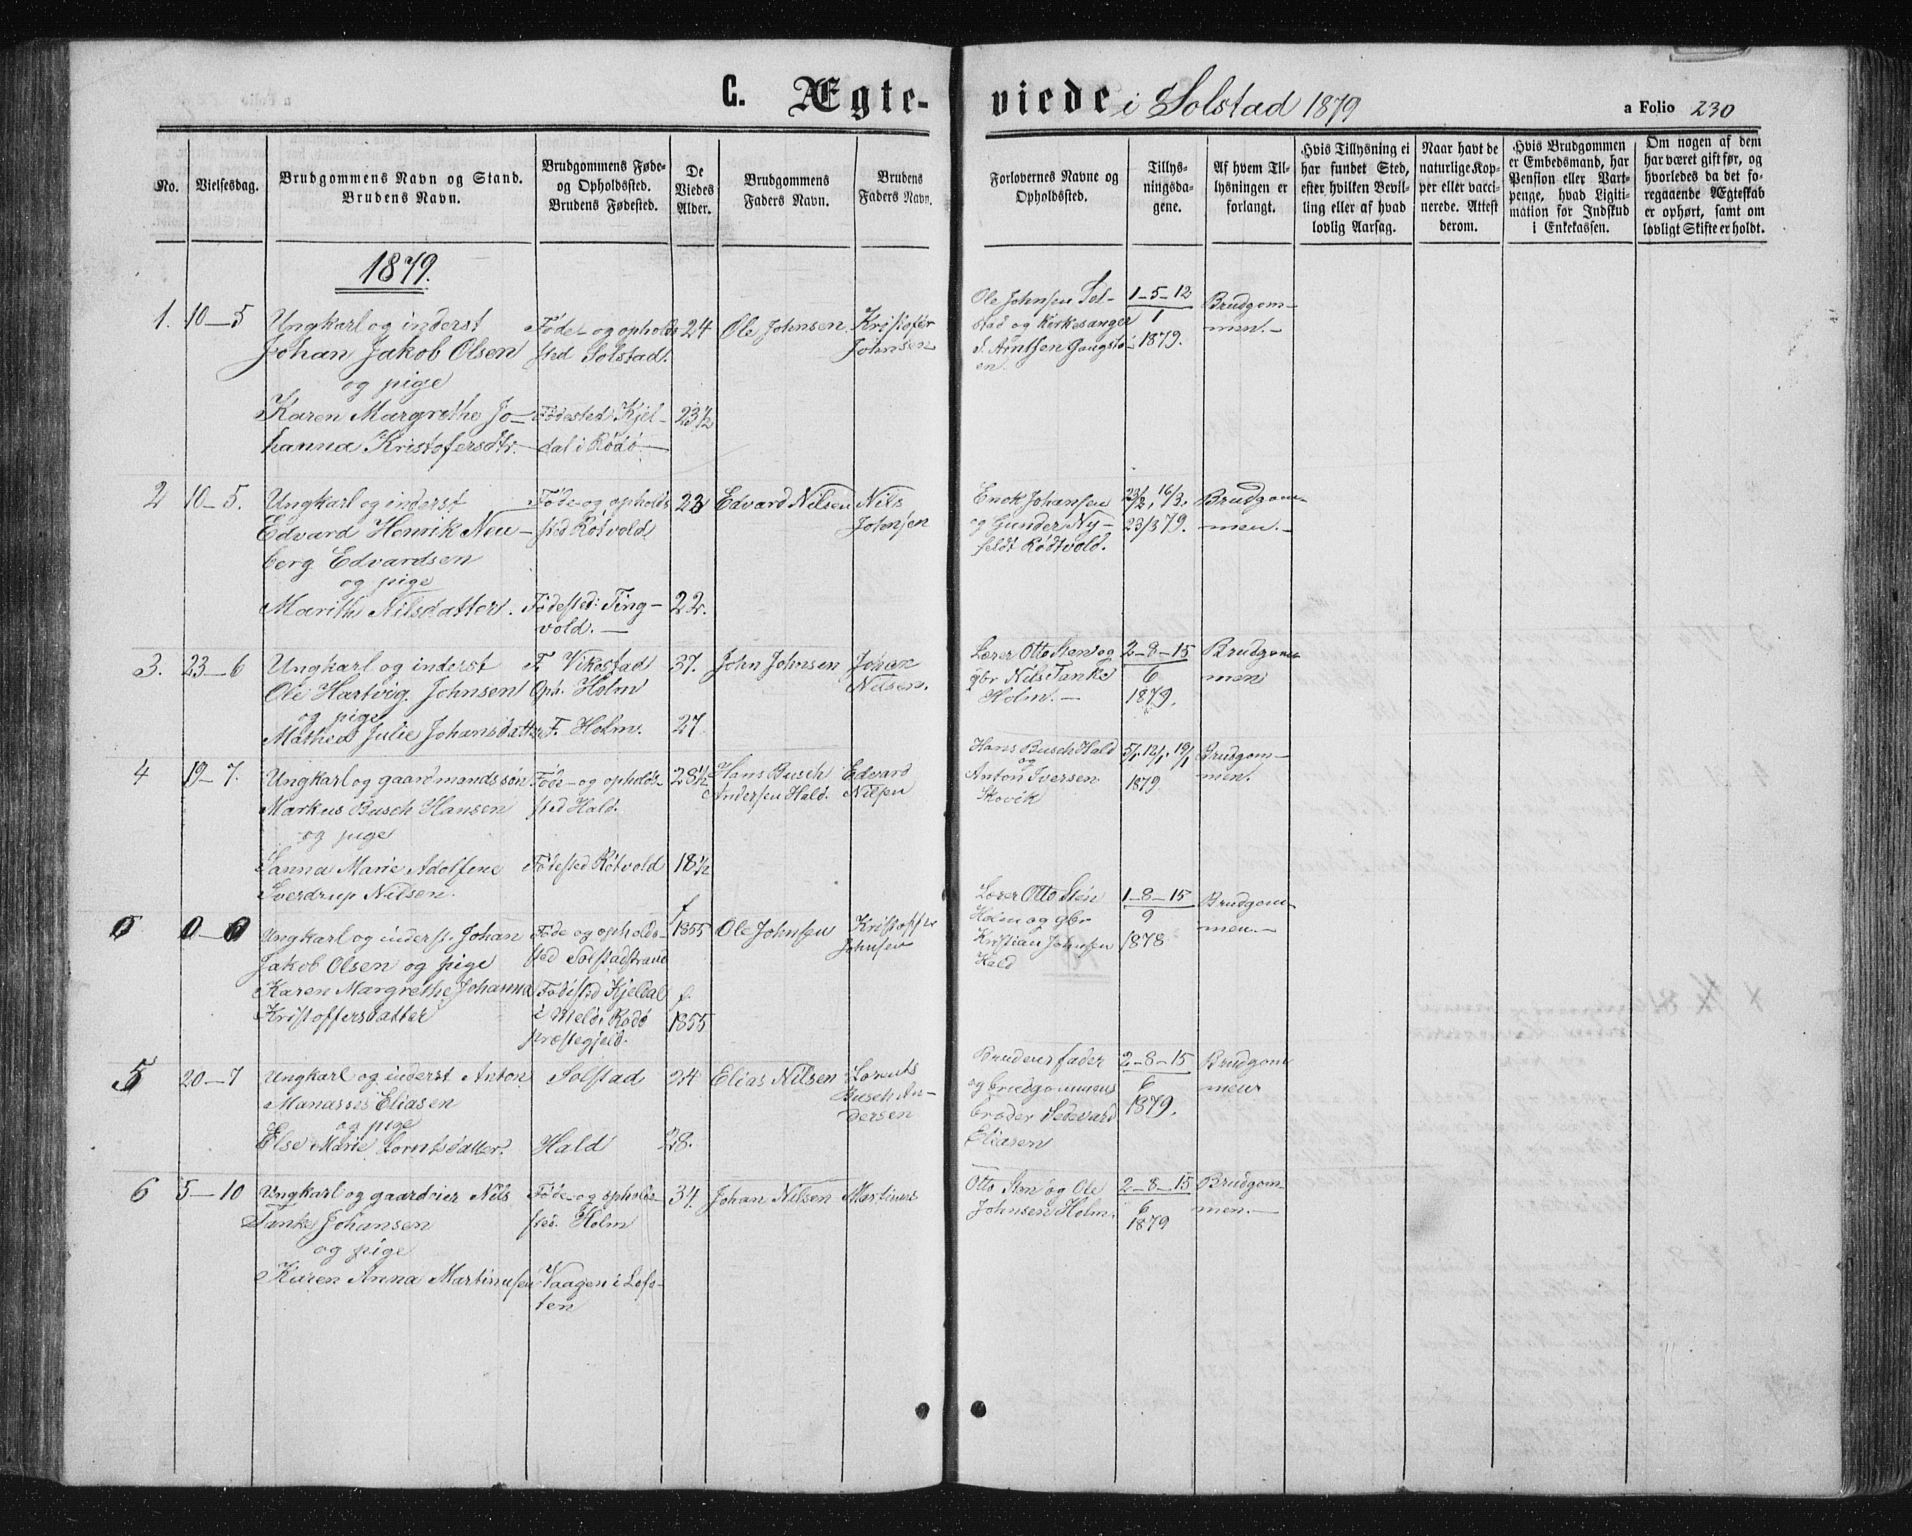 C. Ægte-viede i Solstad 1879
a Folio 230
No.
Vielsesdag.
Brudgommens Navn og Stand.
Brudens Navn.
Brudgommens Føde-
og Opholdssted.
Brudens Fødested.
De
Viedes
Alder.
Brudgommens
Faders Navn.
Brudens
Faders Navn.
Forlovernes Navne og
Opholdssted.
Tillys-
ningsda-
gene.
Af hvem Til-
lysningen er
forlangt.
Hvis Tillysning ei
har fundet Sted,
efter hvilken Bevil-
ling eller af hvad
lovlig Aarsag.
Naar havt de
naturlige Kop-
per eller vacci-
nerede. Attest
derom.
Hvis Brudgommen
er Embedsmand, har
Pension eller Vart-
penge, hvad Ligiti-
mation for Indskud
i Enkekassen.
Om nogen af dem
har været gift før, og
hvorledes da det fo-
regaaende Ægteskab
er ophørt, samt om
lovligt Skifte er holdt.
1879.
1.
10-5
Ungkarl og inderst
Johan Jakob Olsen
og pige
Karen Margrethe Jo-
hanna Kristofersdtr.
Føde- og opholds-
sted Solstad.
Fødested Kjel-
dal i Rødø
24
23½
Ole Johnsen
Kristofer
Johnsen
Ole Johnsen Sol-
stad og Kirkesanger
J. Arntsen Gaugstø-
en.
1-5-12
1
1879.
Brudgom-
men.
2
10-5.
Ungkarl og inderst
Edvard Henrik Neu-
berg Edvardsen
og pige
Marith Nilsdatter.
Føde- og opholds-
sted Røtvold
Fødested: Ting-
vold.
23
22.
Edvard Nilsen
Nils
Johnsen
Enok Johansen
og Gunder Ny-
feldt Rødtvold.
23/2, 16/3,
23/3 79.
Brudgom-
men.
3.
23-6
Ungkarl og inderst
Ole Hartvig Johnsen
og pige
Mathea Julie Johansdatter
F. Vikestad
Oph. Holm
F. Holm.
37.
27
John Johnsen
Johan
Nilsen.
Lærer Otto Sten og
gbr Nils Tanke
Holm.
2-8-15
6
1879.
Brudgom-
men
4
19-7.
Ungkarl og gaardmandssøn
Markus Busch Hansen
og pige
Sanna Marie Adolfine
Sverdrup Nilsen.
Føde- og opholds-
sted Hald.
Fødested Røtvold
28½
18½
Hans Busch
Andersen Hald.
Edvard
Nilsen
Hans Busch Hald
og
Anton Iversen
Skovik
5/1, 12/1, 19/1
1879
Brudgom-
men.
0
0-0
Ungkarl og inderst Johan
Jakob Olsen og pige
Karen Margrethe Johanna
Kristoffersdatter
Føde og opholds-
sted Solstadstrand
Fødested Kjeldal
i Melø, Rødø
præstegjeld.
f
1855
f.
1855
Ole Johnsen
Kristoffer
Johnsen
Lærer Otto Sten
Holm og gbr
Kristian Johnsen
Hald
1-8-15
9
1878
Brudgom-
men.
5
20-7
Ungkarl og inderst Anton
Manasses Eliasen
og pige
Else Marie Lorntsdatter.
Solstad
Hald
24
28.
Elias Nilsen
Lorents
Busch An-
dersen
Brudens fader
og brudgommens
broder Sedevard
Eliasen
2-8-15
6
1879.
Brudgom
men
6
5-10
Ungkarl og gaardeier Nils
Tanke Johansen
og pige
Karen Anna Martinusen
Føde- og opholds-
sted. Holm
Vaagen i Lofo-
ten
34.
Johan Nilsen
Martinus
Otto Sten og Ole
Johnsen Holm.
2-8-15
6
1879
Brudgom-
men.